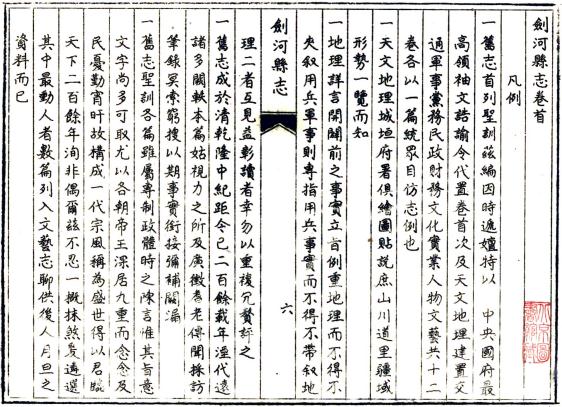 劍河縣志卷首
凡例
一舊志首列聖訓茲編因時遞嬗特以 中央國府最
高領袖文誥諭令代置卷首次及天文地理建置交
通軍事黨務民政財務文化實業人物文藝共十二
卷各以一篇統眾目仿志例也
一天文地理城垣府署俱繪圖貼說庶山川道里疆域
形勢一覽而知
一地理詳言開闢前之事實立首例重地理而不得不
夾叙用兵軍事則專指用兵事實而不得不帶叙地
劍河縣志
六
理二者互見益彰讀者幸勿以重複冗贅評之
一舊志成於清乾隆中紀距今已二百餘載年湮代遠
諸多闕軼本篇姑視力之所及廣徵耆老傳聞採訪
筆錄冥索窮搜以期事實銜接彌補闕漏
一舊志聖訓各篇雖屬專制政體時之陳言惟其旨意
文字尚多可取尤以各朝帝王深居九重而念念及
民憂勤宵旰故構成一代宗風稱為盛世得以君臨
天下二百餘年洵非偶爾茲不忍一概抹煞爰遴選
其中最動人者數篇列入文藝志聊供後人月旦之
資料而已